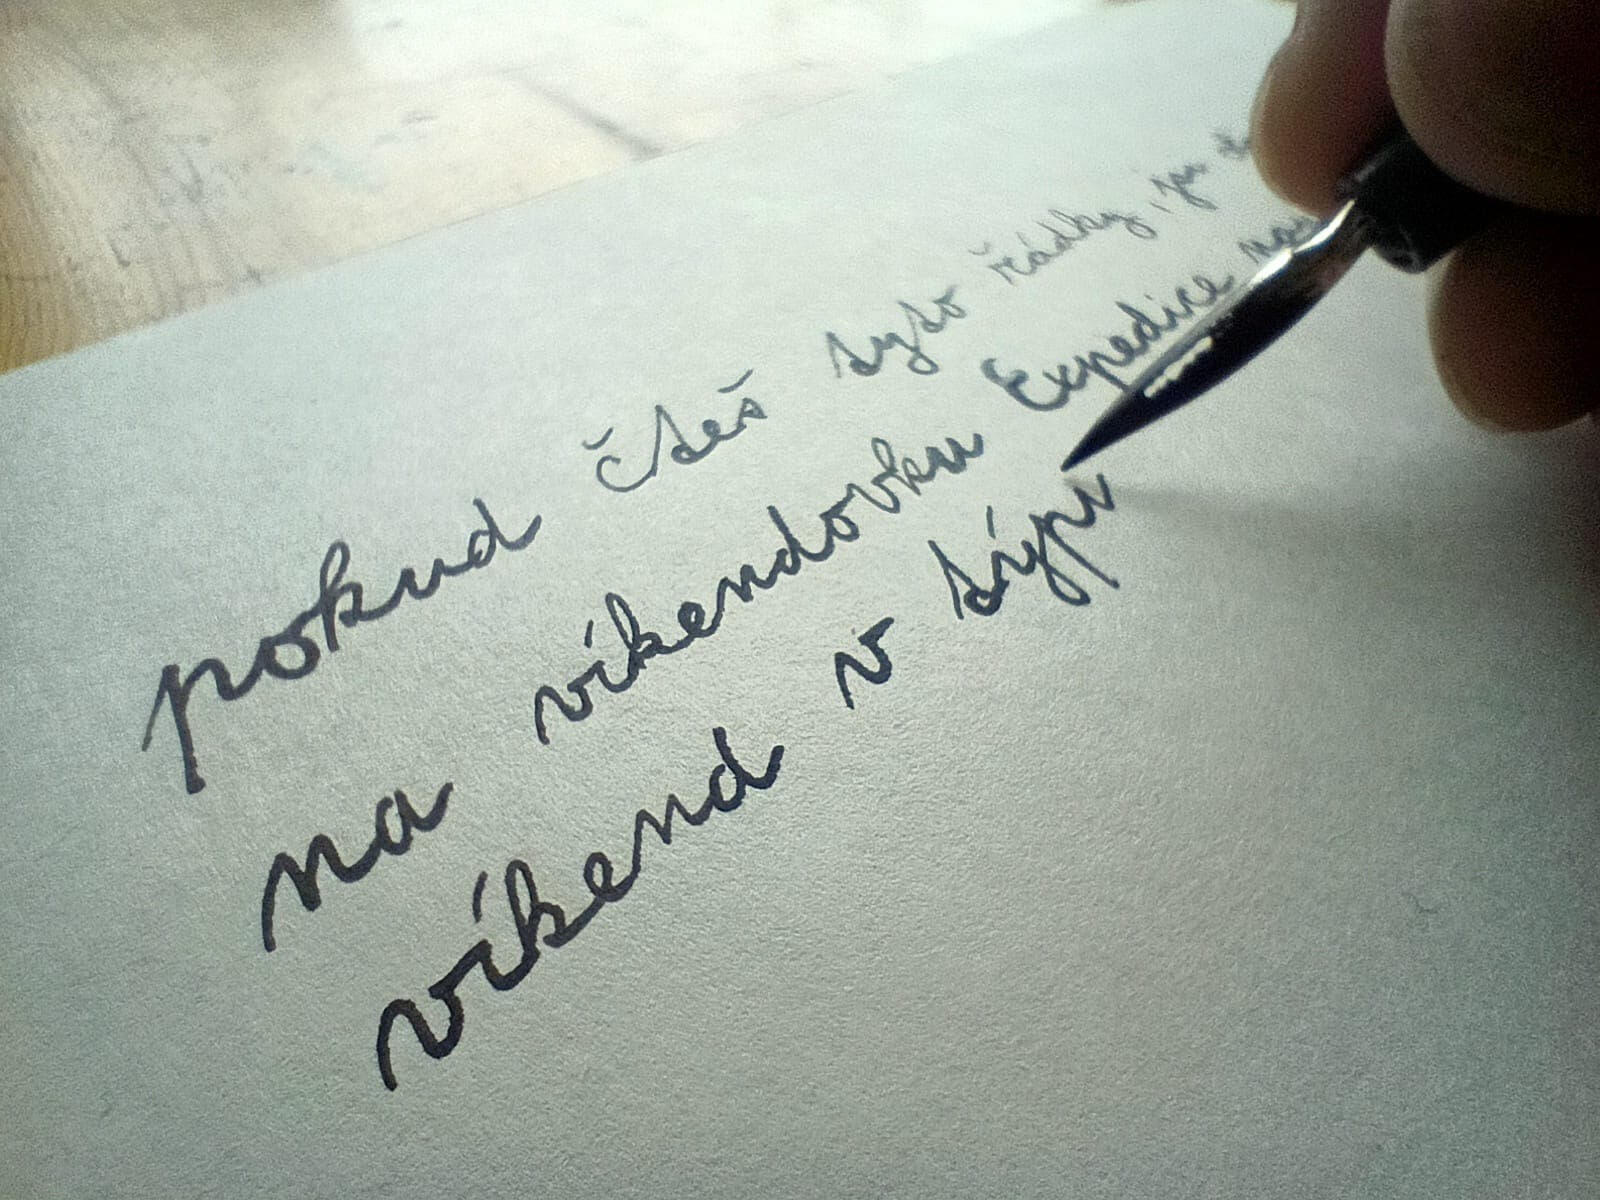 pokud čteš tyto řádky, je
na víkendovku Expedice
víkend v týpi